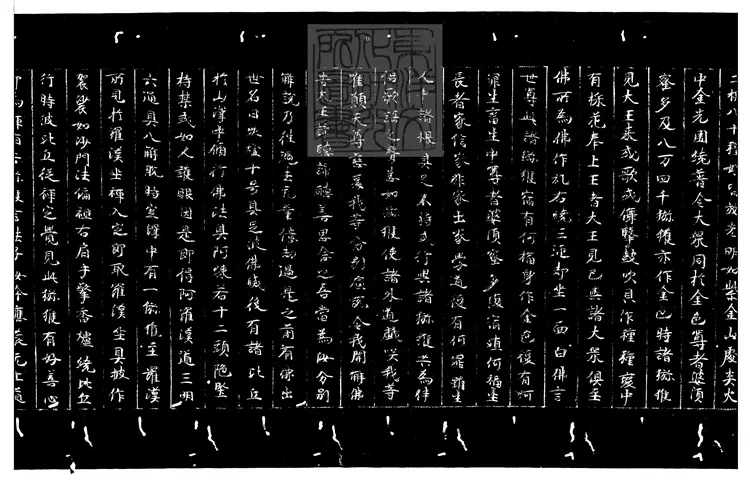 中金光圍繞普令大衆同於金色尊者婆須
蜜多及八万四千獼猴亦作金色時諸獼猴
見大王来或歌或儛擊皷吹貝作種種變中
有採花奉上王者大王見已與諸大衆俱至
佛所為佛作礼右繞三迊却坐一面白佛言
世尊此諸獼猴宿有何福身作金色復有何
罪生畜生中尊者婆須蜜多復宿殖何福生
長者家信家非家出家學道復有何罪雖生
人中諸根具足不持戒行與諸獼猴共為伴
侣歌語之聲悉如獼猴使諸外道戲笑我等
唯願天尊慈愍我等分別廣說令我開解佛
告大王諦聽諦聽善思念之吾當為汝分別
解說乃往過去无量億劫過是之前有佛出
世名曰然燈十号具足彼佛滅後有諸比丘
於山澤中脩行佛法具阿練若十二頭陁堅
持禁戒如人護眼因是即得阿羅漢道三明
六通具八解脫時空澤中有一獼猴至羅漢
所見於羅漢坐禪入定即取羅漢坐具披作
袈裟如沙門法偏袒右肩手擎香爐繞比丘
行時彼比丘從禪定覺見此獼猴有好善心